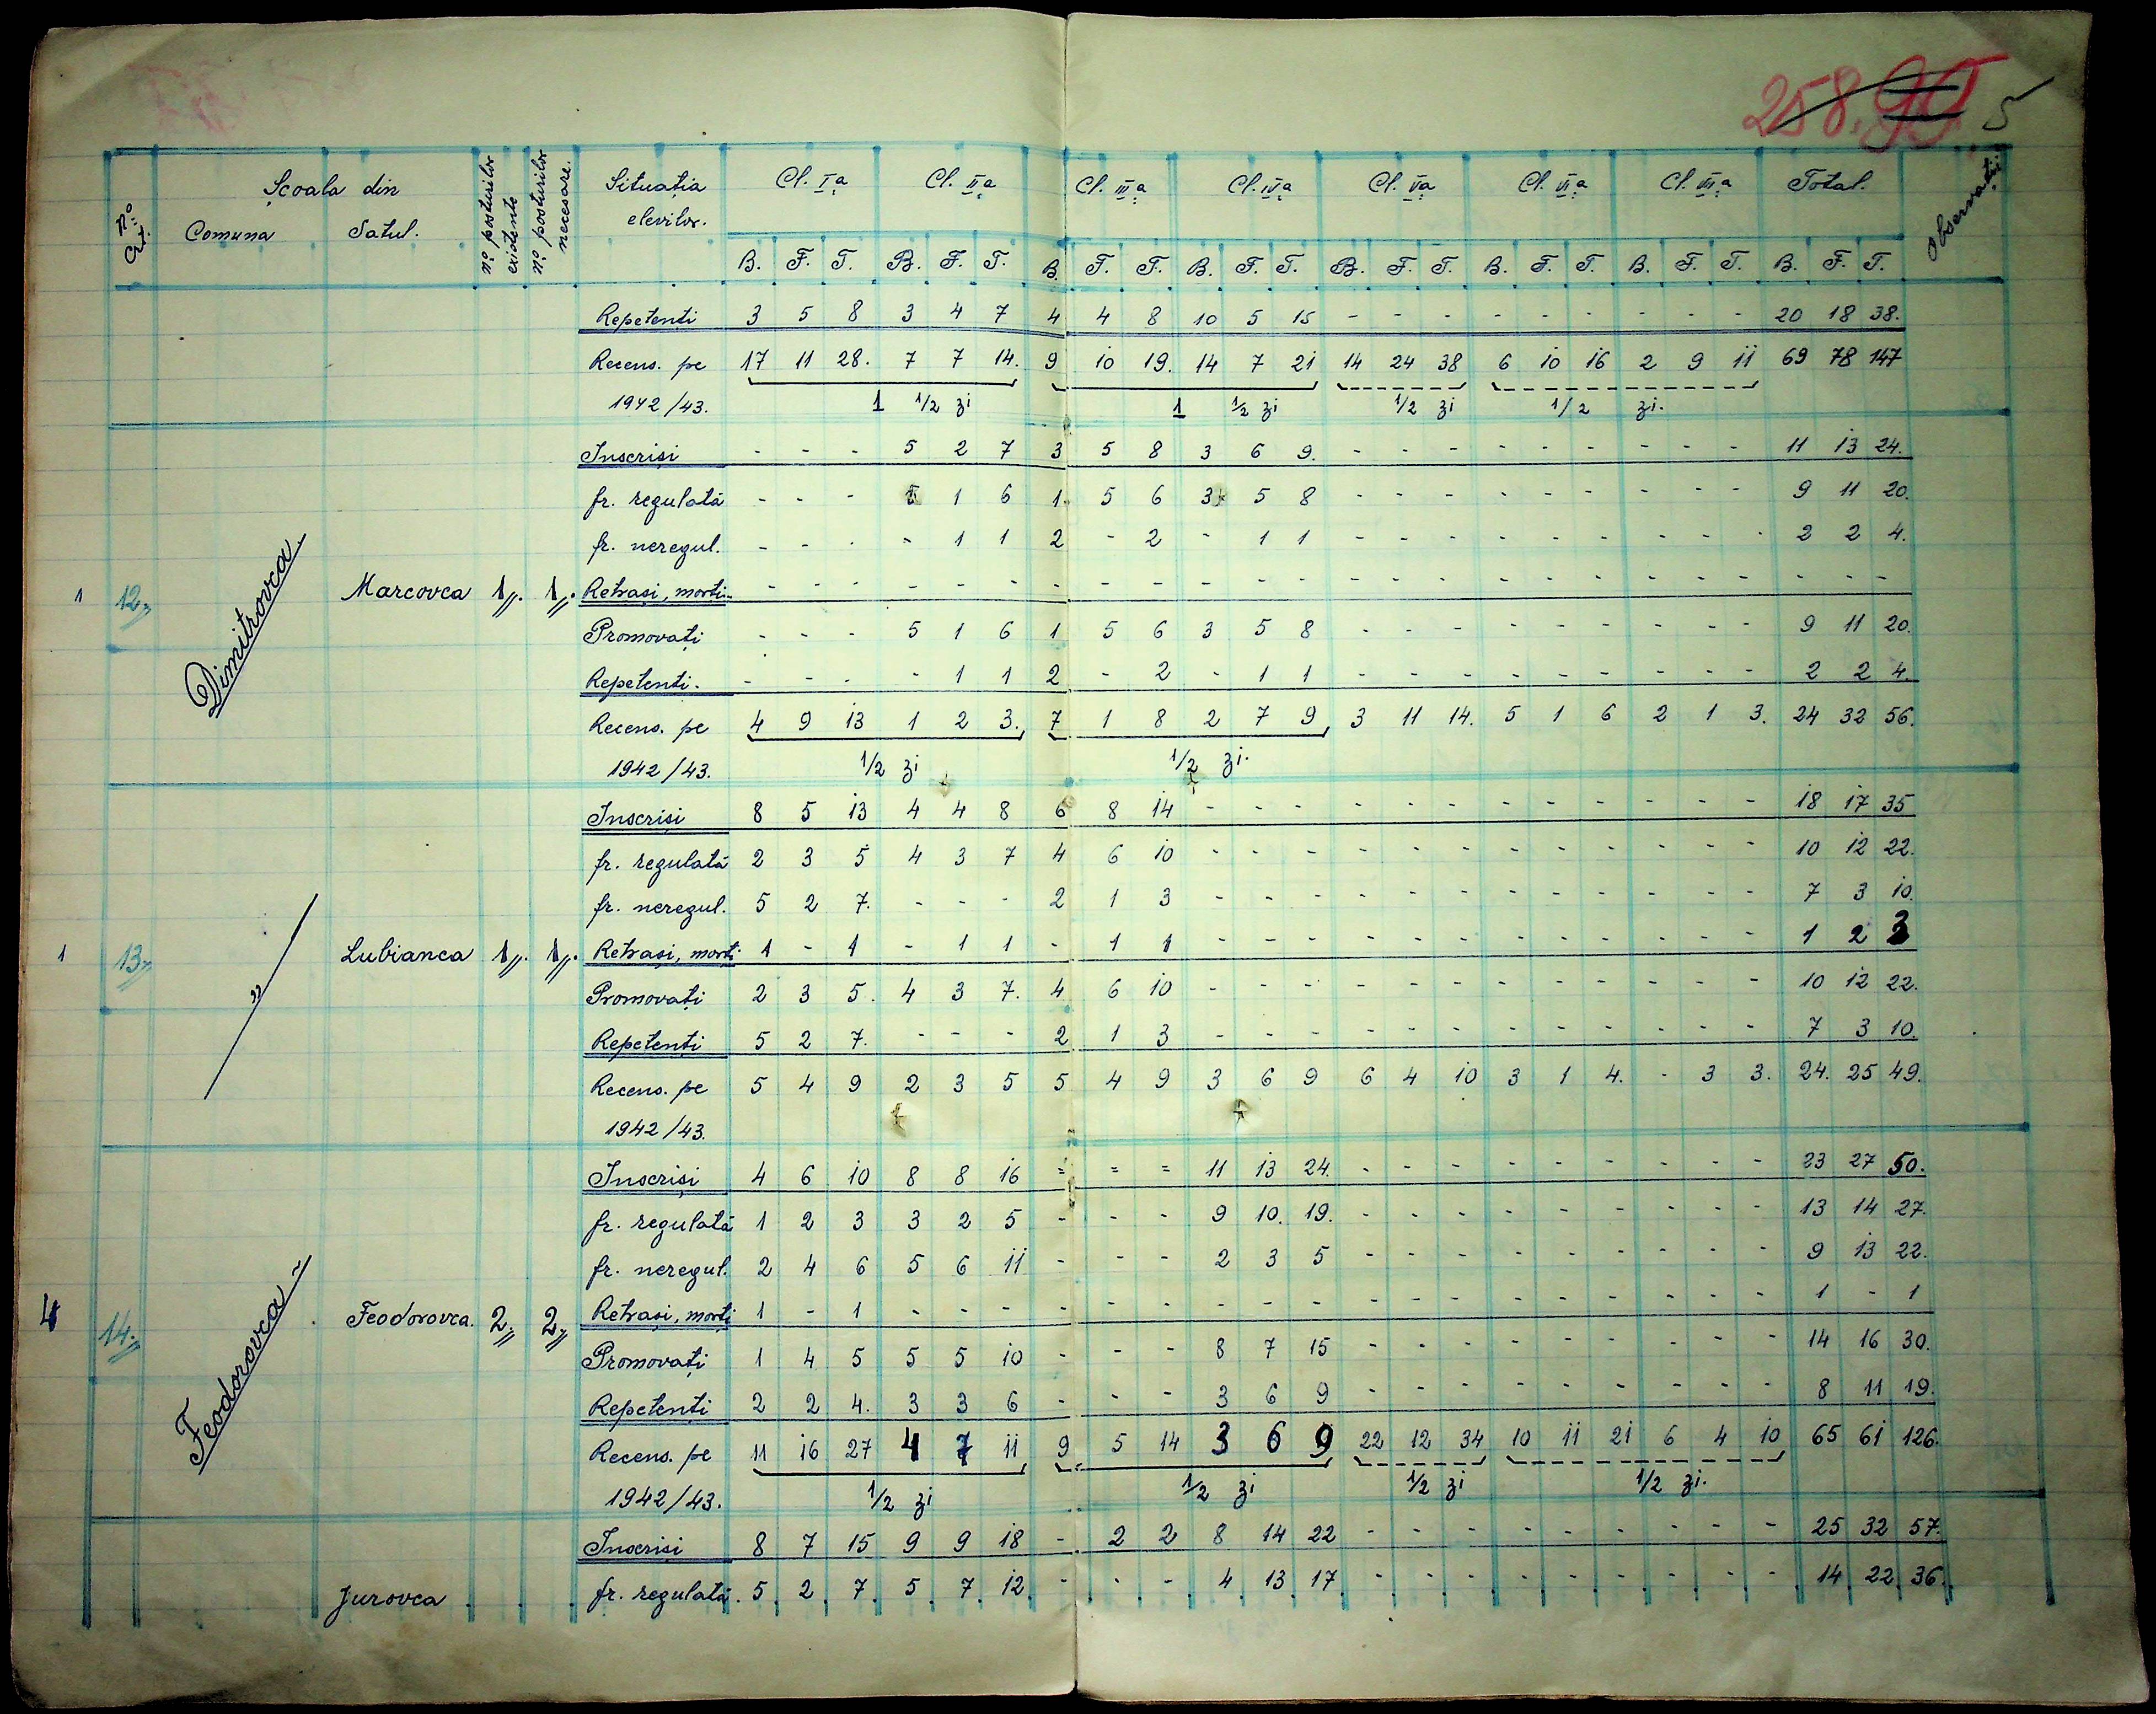 258. 90 5
Nº Crt. Școala din Comuna Satul. nº posturilor existente nº posturilor necesare. Situația elevilor. Cl. I-a Cl. II-a Cl. III-a Cl. IV-a Cl. V-a Cl. VI-a Cl. VII-a Total. Observații
B. F. T. B. F. T. B. F. T. B. F. T. B. F. T. B. F. T. B. F. T. B. F. T.
Repetenti 3 5 8 3 4 7 4 4 8 10 5 15 - - - - - - - - - 20 18 38.
Recens. pe 17 11 28. 7 7 14. 9 10 19. 14 7 21 14 24 38 6 10 16 2 9 11 69 78 147
1942/43. 1 1/2 zi 1 1/2 zi 1/2 zi 1/2 zi.
Inscriși - - - 5 2 7 3 5 8 3 6 9. - - - - - - - - - 11 13 24.
fr. regulată - - - 5 1 6 1 5 6 3 5 8 - - - - - - - - - 9 11 20.
fr. neregul. - - - - 1 1 2 - 2 - 1 1 - - - - - - - - - 2 2 4.
1 12 Dimitrovca Marcovca 1 1 Retrași, morți - - - - - - - - - - - - - - - - - - - - - - - -
Promovați - - - 5 1 6 1 5 6 3 5 8 - - - - - - - - - 9 11 20.
Repetenti. - - - - 1 1 2 - 2 - 1 1 - - - - - - - - - 2 2 4.
Recens. pe 4 9 13 1 2 3. 7 1 8 2 7 9 3 11 14. 5 1 6 2 1 3. 24 32 56.
1942/43. 1/2 zi 1/2 zi.
Inscriși 8 5 13 4 4 8 6 8 14 - - - - - - - - - - - - 18 17 35
fr. regulată 2 3 5 4 3 7 4 6 10 - - - - - - - - - - - - 10 12 22.
fr. neregul. 5 2 7. - - - 2 1 3 - - - - - - - - - - - - 7 3 10.
1 13 „ Lubianca 1 1 Retrași, morți 1 - 1 - 1 1 - 1 1 - - - - - - - - - - - - 1 2 3
Promovați 2 3 5. 4 3 7. 4 6 10 - - - - - - - - - - - - 10 12 22.
Repetenți 5 2 7. - - - 2 1 3 - - - - - - - - - - - - 7 3 10.
Recens. pe 5 4 9 2 3 5 5 4 9 3 6 9 6 4 10 3 1 4. - 3 3. 24. 25 49.
1942/43.
Inscriși 4 6 10 8 8 16 = = = 11 13 24. - - - - - - - - - 23 27 50.
fr. regulată 1 2 3 3 2 5 - - - 9 10. 19. - - - - - - - - - 13 14 27.
fr. neregul. 2 4 6 5 6 11 - - - 2 3 5 - - - - - - - - - 9 13 22.
4 14. Feodorovca Feodorovca. 2 2 Retrași, morți 1 - 1 - - - - - - - - - - - - - - - - - - 1 - 1
Promovați 1 4 5 5 5 10 - - - 8 7 15 - - - - - - - - - 14 16 30.
Repetenți 2 2 4. 3 3 6 - - - 3 6 9 - - - - - - - - - 8 11 19.
Recens. pe 11 16 27 4 7 11 9 5 14 3 6 9 22 12 34 10 11 21 6 4 10 65 61 126.
1942/43. 1/2 zi 1/2 zi 1/2 zi 1/2 zi.
Inscriși 8 7 15 9 9 18 - 2 2 8 14 22 - - - - - - - - - 25 32 57.
Jurovca fr. regulată 5 2 7 5 7 12 - - - 4 13 17 - - - - - - - - - 14 22 36.